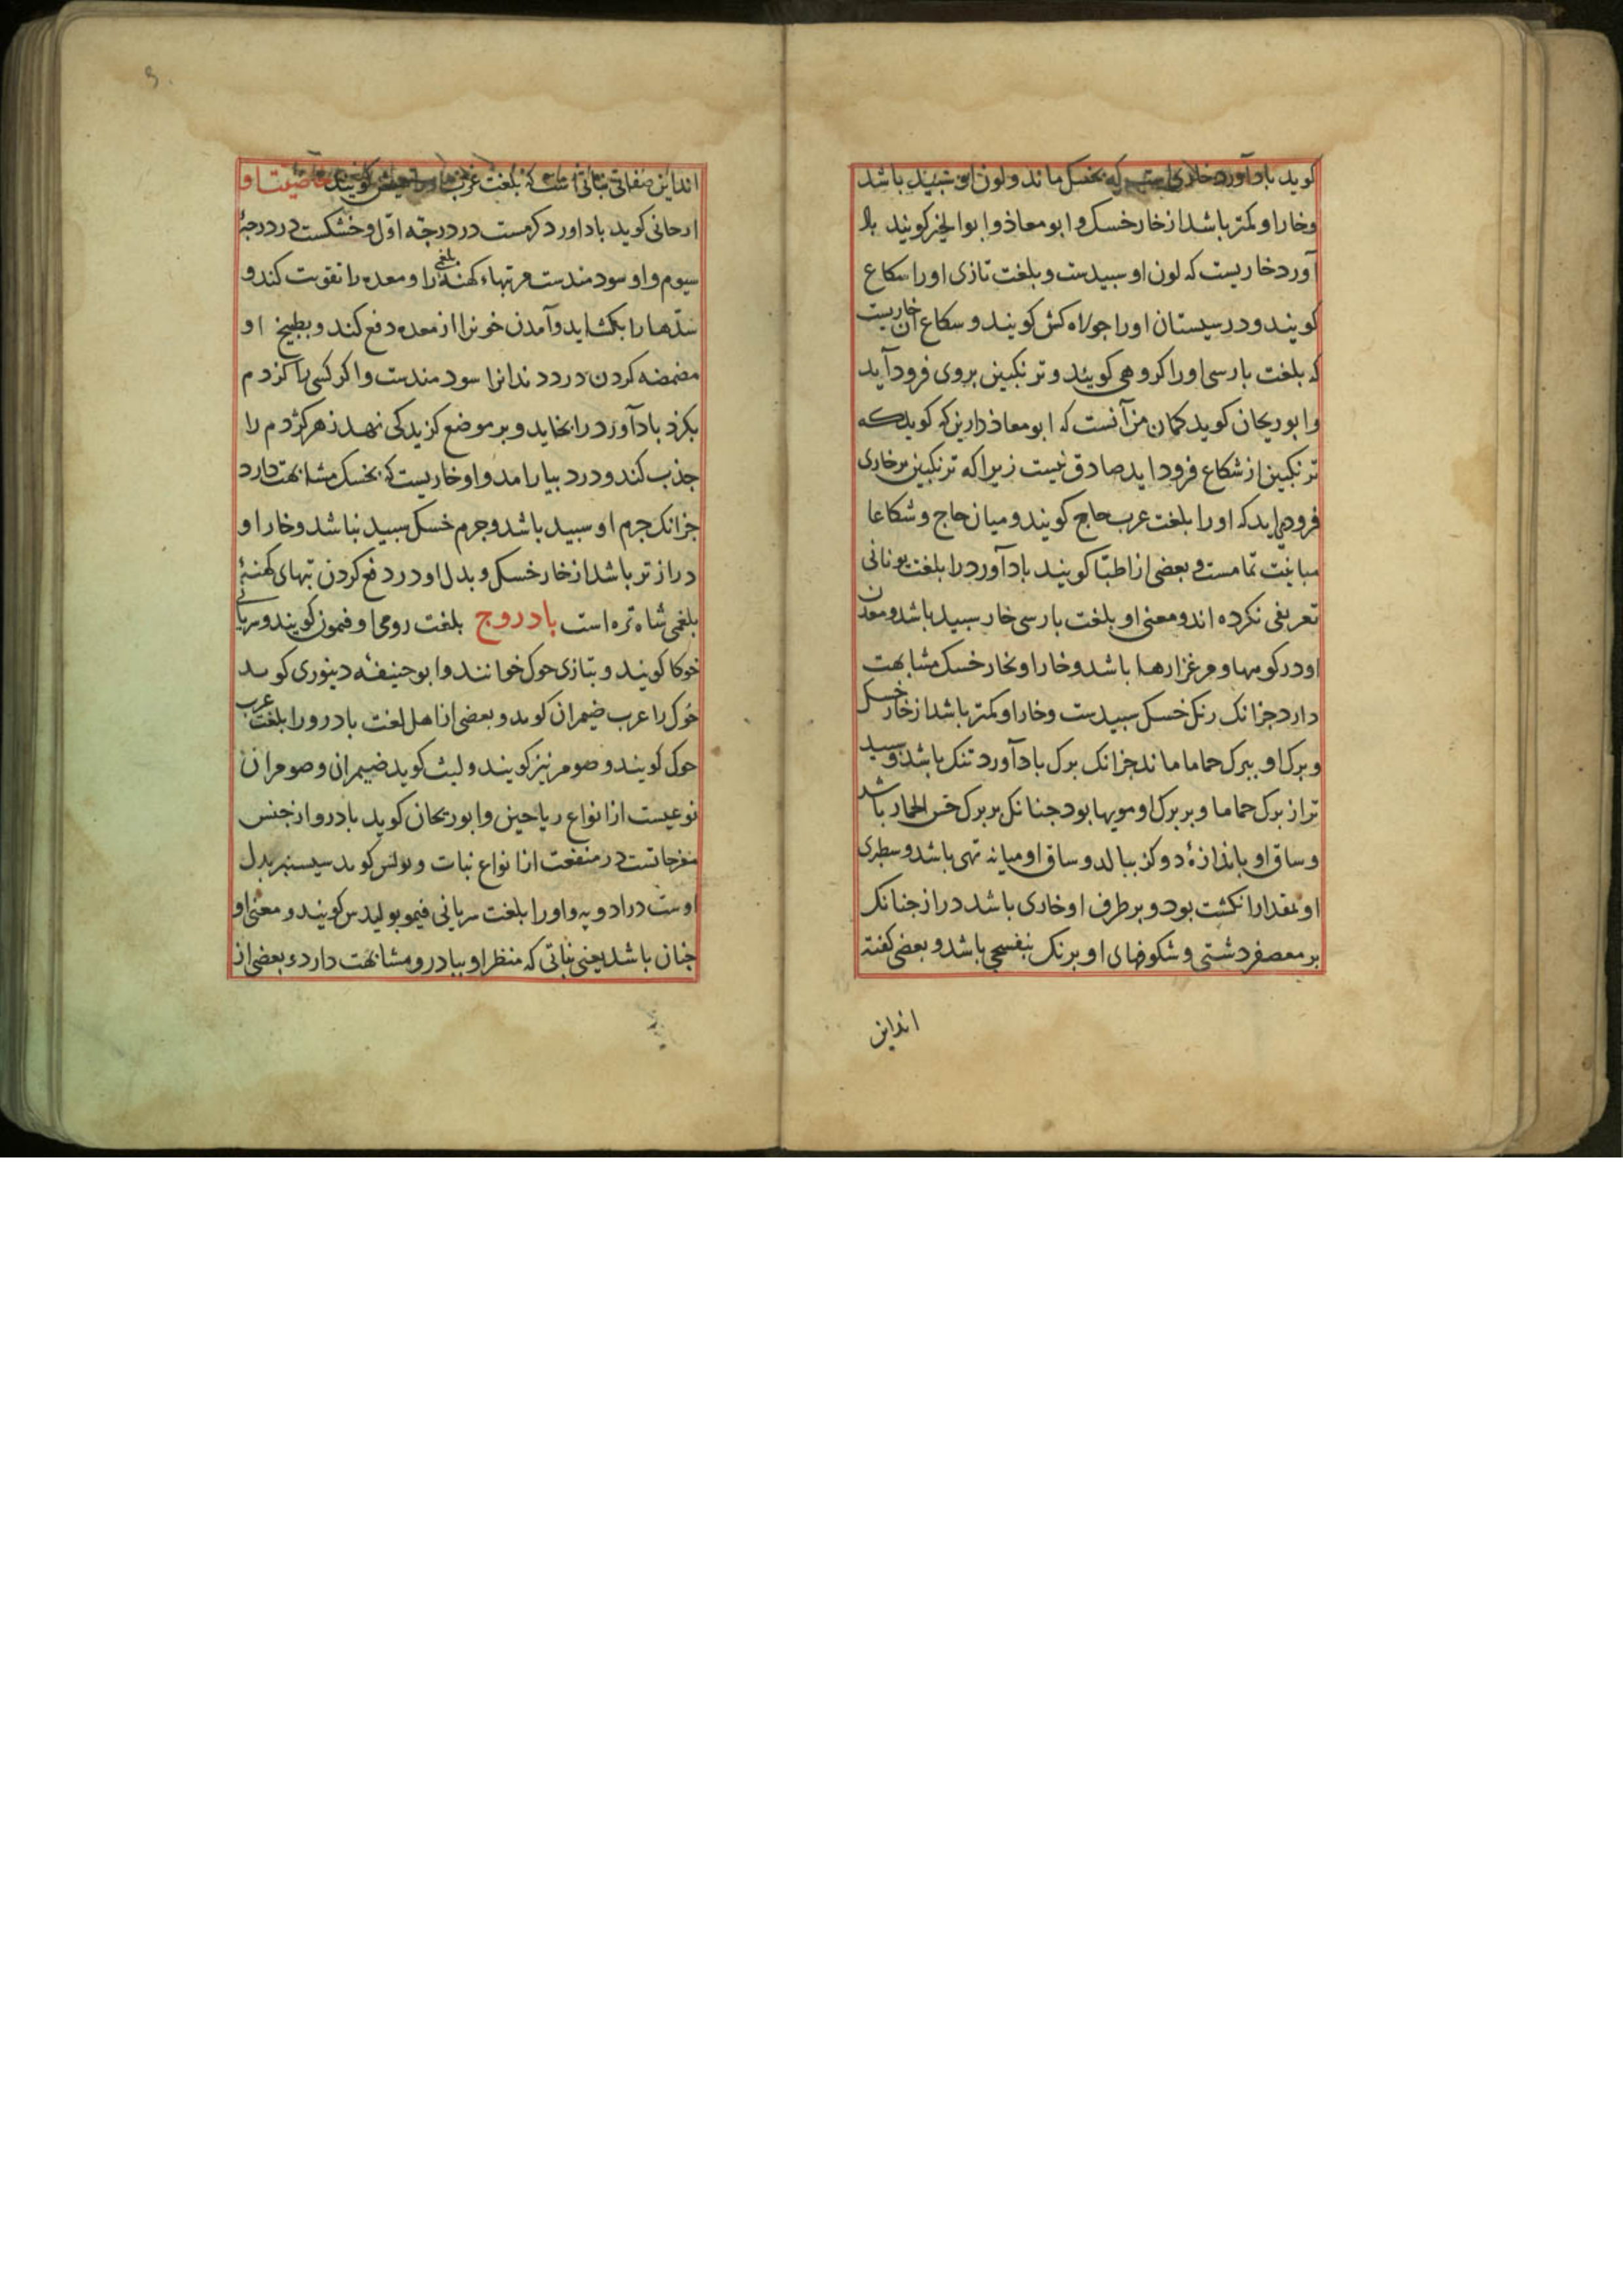 کوید باد آورد خاری است که بخسک ماند و لون او سبید باشد
و خار او کمتر باشد از خار خسک و ابو معاذ و ابو الخیر کویند باد
آورد خاریست که لون او سبیدست و بلغت تازی او را سکاع
کویند و در سیستان او را جولاه کش کویند و سکاع آن خاریست
که بلغت بارسی او را کروهی کویند و ترنکبین بروی فرود آید
و ابو ریحان کوید کمان من آنست که ابو معاذ درین که کوید که
ترنکبین از شکاع فرود اید صادق نیست زیرا که ترنکبین بر خاری
فرود می اید که او را بلغت عرب حاج کویند و میان حاج و شکاعا
مباینت تمامست و بعضی از اطبا کویند باد آورد را بلغت یونانی
تعریفی نکرده اند و معنی او بلغت بارسی خار سبید باشد و معدن
او در کوهها و مرغزارها باشد و خار او بخار خسک مشابهت
دارد جز انک رنک خسک سبیدست و خار او کمتر باشد از خار خسک
و برک او ببرک حماما ماند جز انک برک باد آورد تنک باشد و سبید
تر از برک حماما و بر برک او مویها بود جنانک بر برک خس الحمار باشد
و ساق او باندازۀ دو کز ببالد و ساق او میانه تهی باشد و سطبری
او بمقدار انکشت بود و بر طرف او خاری باشد دراز جنانک
بر معصفر دشتی و شکوفهای او برنک بنفسجی باشد و بعضی کفته
اند این
اند این صفاتی نباتی است که بلغت عرب او را کویند خاصیت او
ارجانی کوید باد اورد کرمست در درجه اول و خشکست در درجۀ
سیوم و او سودمندست مر تبهاء کهنۀ بلغمی را و معده را تقویت کند و
سدها را بکشاید و آمدن خونرا از معده دفع کند و بطبیخ او
مضمضه کردن درد دندانرا سودمندست و اکر کسی را کزدم
بکزد باد آورد را بخاید و بر موضع کزیدکی نهد زهر کژدم را
جذب کند و درد بیارامد و او خاریست که بخسک مشابهت دارد
جز انک جرم او سبید باشد و جرم خسک سبید نباشد و خار او
دراز تر باشد از خار خسک و بدل او در دفع کردن تبهای کهنۀ
بلغمی شاه تره است بادروج بلغت رومی اوفیمون کویند و سریانی
خوکا کویند و بتازی حوک خوانند و ابو حنیفه دینوری کوید
حوک را عرب ضیمران کوید و بعضی از اهل لغت بادرو را بلغت عرب
حوک کویند و صومر نیز کویند و لیث کوید ضیمران و صومران
نوعیست از انواع ریاحین و ابو ریحان کوید بادرو از جنس
مفرحاتست در منفعت از انواع نبات و بولس کوید سیسنبر بدل
اوست در ادویه و او را بلغت سریانی فیموبولیدس کویند و معنی او
جنان باشد یعنی نباتی که منظر او ببادرو مشابهت دارد و بعضی از